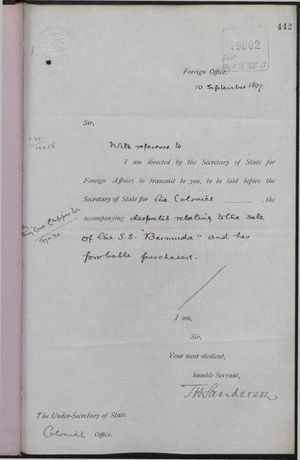 442
15002
Foreign Office,
10 September 1897
Sir,
With reference to
I am directed by the Secretary of State for
Foreign Affairs to transmit to you, to be laid before
Secretary of State for the Colonial , the
accompanying despatch relating to the sale
of the S.S. "Bermuda" and her
probable purchasers.
I am,
Sir,
Your most obedient,
humble Servant,
THSanderson
The Under-Secretary of State,
Colonial Office.